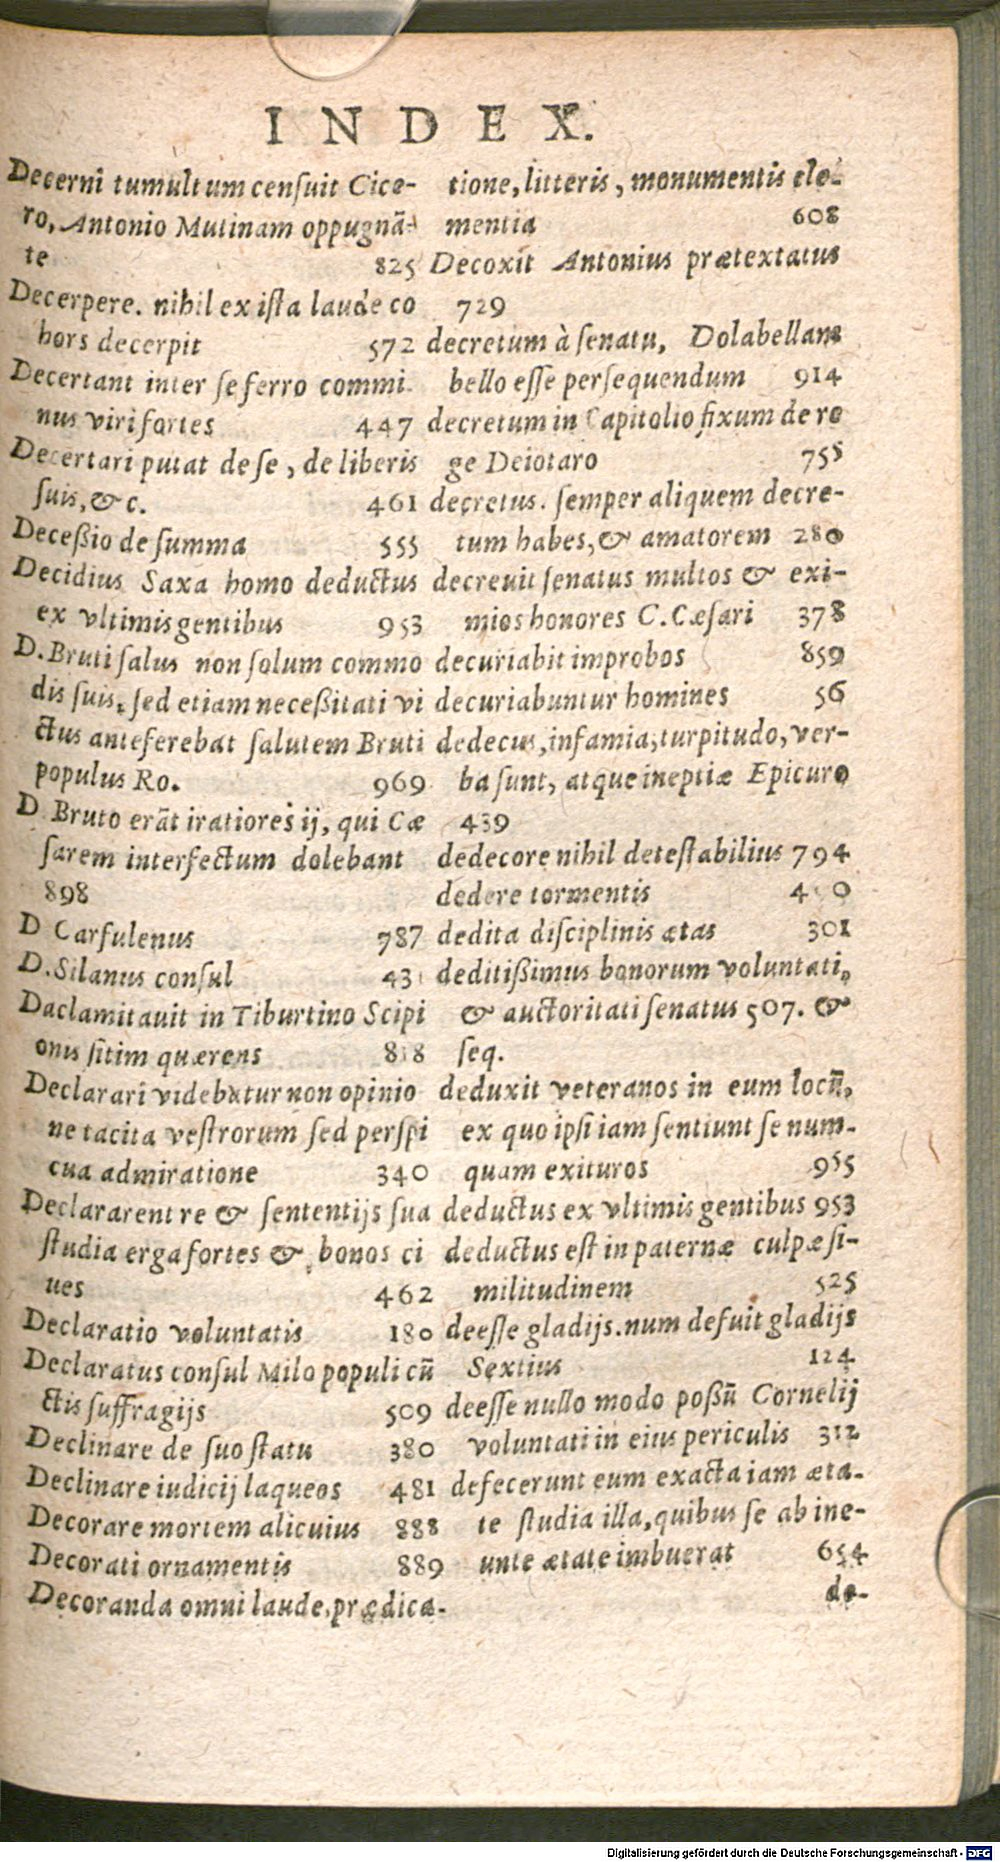 INDEX.
Decerni tumultum censuit Cice-
ro, Antonio Mutinam oppugnā-
te 825
Decerpere. nihil ex ista laude co
hors decerpit 572
Decertant inter se ferro commi
nus viri fortes 447
Decertari putat de se, de liberis
suis, & c. 461
Deceßio de summa 555
Decidius Saxa homo deductus
ex vltimis gentibus 953
D. Bruti salus non solum commo
dis suis, sed etiam neceßitati vi
ctus anteferebat salutem Bruti
populus Ro. 969
D Bruto erāt iratiores ij, qui Cæ
sarem interfectum dolebant
898
D Carfulenus 787
D. Silanus consul 43
Daclamitauit in Tiburtino Scipi
onis sitim quærens 818
Declarari videbatur non opinio
ne tacita vestrorum sed perspi
cua admiratione 340
Declararent re & sententijs sua
studia erga fortes & bonos ci
ues 462
Declaratio voluntatis 180
Declaratus consul Milo populi cū
ctis suffragijs 509
Declinare de suo statu 380
Declinare iudicij laqueos 481
Decorare mortem alicuius 888
Decorati ornamentis 889
Decoranda omni laude, prædica-
tione, litteris, monumentis cle-
mentia 608
Decoxit Antonius prætextatus
729
decretum à senatu, Dolabellam
bello esse persequendum 914
decretum in Capitolio fixum de re
ge Deiotaro 755
decretus. semper aliquem decre-
tum habes, & amatorem 280
decreuit senatus multos & exi-
mios honores C. Cæsari 378
decuriabit improbos 859
decuriabuntur homines 56
dedecus, infamia, turpitudo, ver-
ba sunt, atque ineptiæ Epicuro
439
dedecore nihil detestabilius 794
dedere tormentis
dedita disciplinis ætas 301
deditißimus bonorum voluntati,
& auctoritati senatus 507. &
seq.
deduxit veteranos in eum locū,
ex quo ipsi iam sentiunt se num-
quam exituros 955
deductus ex vltimis gentibus 953
deductus est in paternæ culpæ si-
militudinem 525
deesse gladijs. num defuit gladijs
Sextius 124
deesse nullo modo poßū Cornelij
voluntati in eius periculis 312
defecerunt eum exacta iam æta-
te studia illa, quibus se ab ine-
unte ætate imbuerat 654
de-
Digitalisierung gefördert durch die Deutsche Forschungsgemeinschaft - DFG